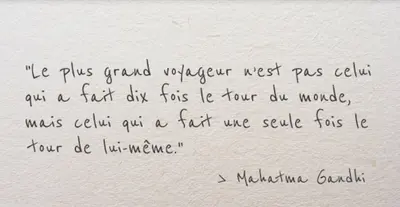 "Le plus grand voyageur n'est pas celui
qui a fait dix fois le tour du monde,
mais celui qui a fait une seule fois le
tour de lui-même."
> Mahatma Gandhi